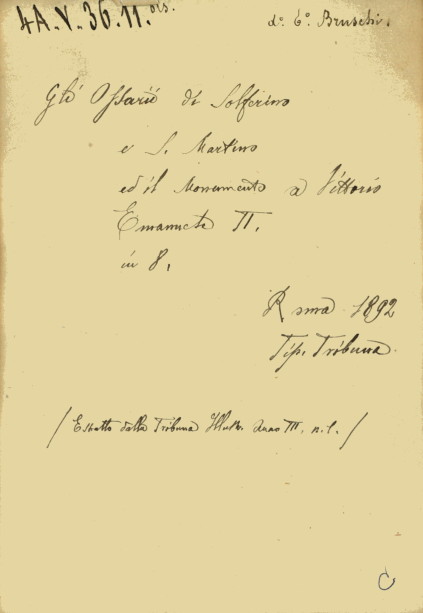 4A.V.36.11. bis.
d.° E.° Bruschi.
Gli Ossarii di Solferino
e S. Martino
ed il Monumento a Vittorio
Emanuele II.
in 8,
Roma 1892
Tip. Tribuna.
/ Estratto dalla Tribuna Illustr. Anno III. n.1. /
C